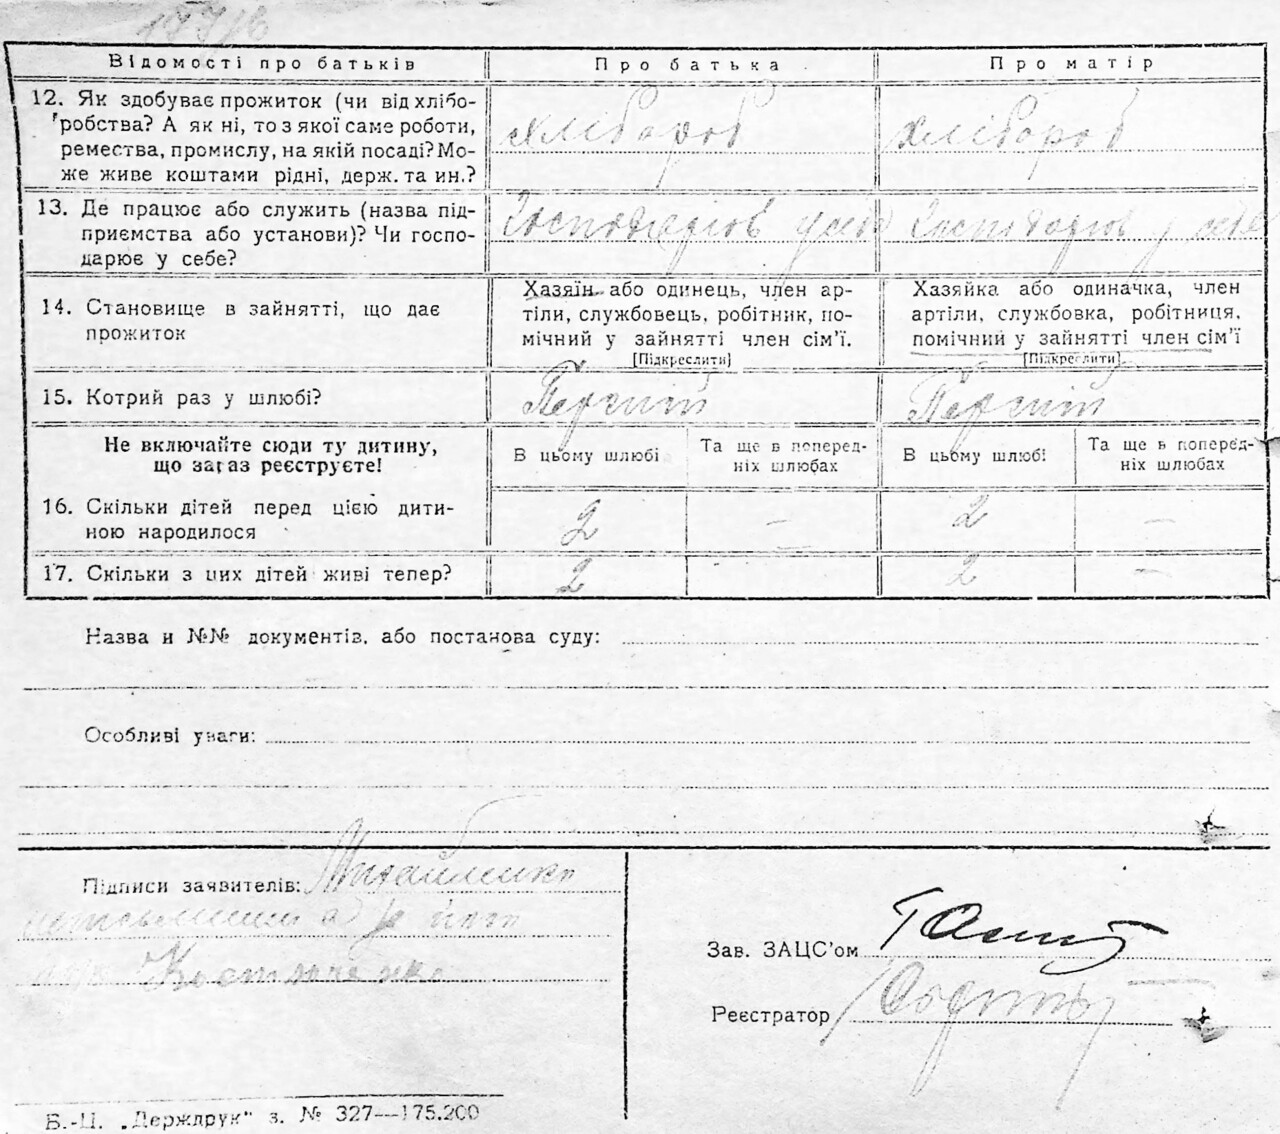 177/6
Відомості про батьків
Про батька
Про матір
12. Як здобуває прожиток (чи від хлібо-
робства? А як ні, то з якої саме роботи,
ремества, промислу, на якій посаді? Мо-
же живе коштами рідні, держ. та ин.?
хлібороб
хлібороб
13. Де працює або служить (назва під-
приємства або установи)? Чи госпо-
дарює у себе?
Господарює у себе
Господарює у себе
14. Становище в зайнятті, що дає
прожиток
Хазяїн або одинець, член ар-
тіли, службовець, робітник, по-
мічний у зайнятті член сім'ї.
[Підкреслити]
Хазяйка або одиначка, член
артіли, службовка, робітниця,
помічний у зайнятті член сім'ї
[Підкреслити]
15. Котрий раз у шлюбі?
Перший
Перший
Не включайте сюди ту дитину,
що зараз реєструєте!
В цьому шлюбі
Та ще в поперед-
ніх шлюбах
В цьому шлюбі
Та ще в поперед-
ніх шлюбах
16. Скільки дітей перед цією дити-
ною народилося
2
—
2
—
17. Скільки з цих дітей живі тепер?
2
2
—
Назва и №№ документів, або постанова суду:
Особливі уваги:
Підписи заявителів: Михайленко
неписьменний а за його
Костюченко
Зав. ЗАЦС'ом
Реєстратор
Б.-Ц. „Держдрук" з. № 327—175.200